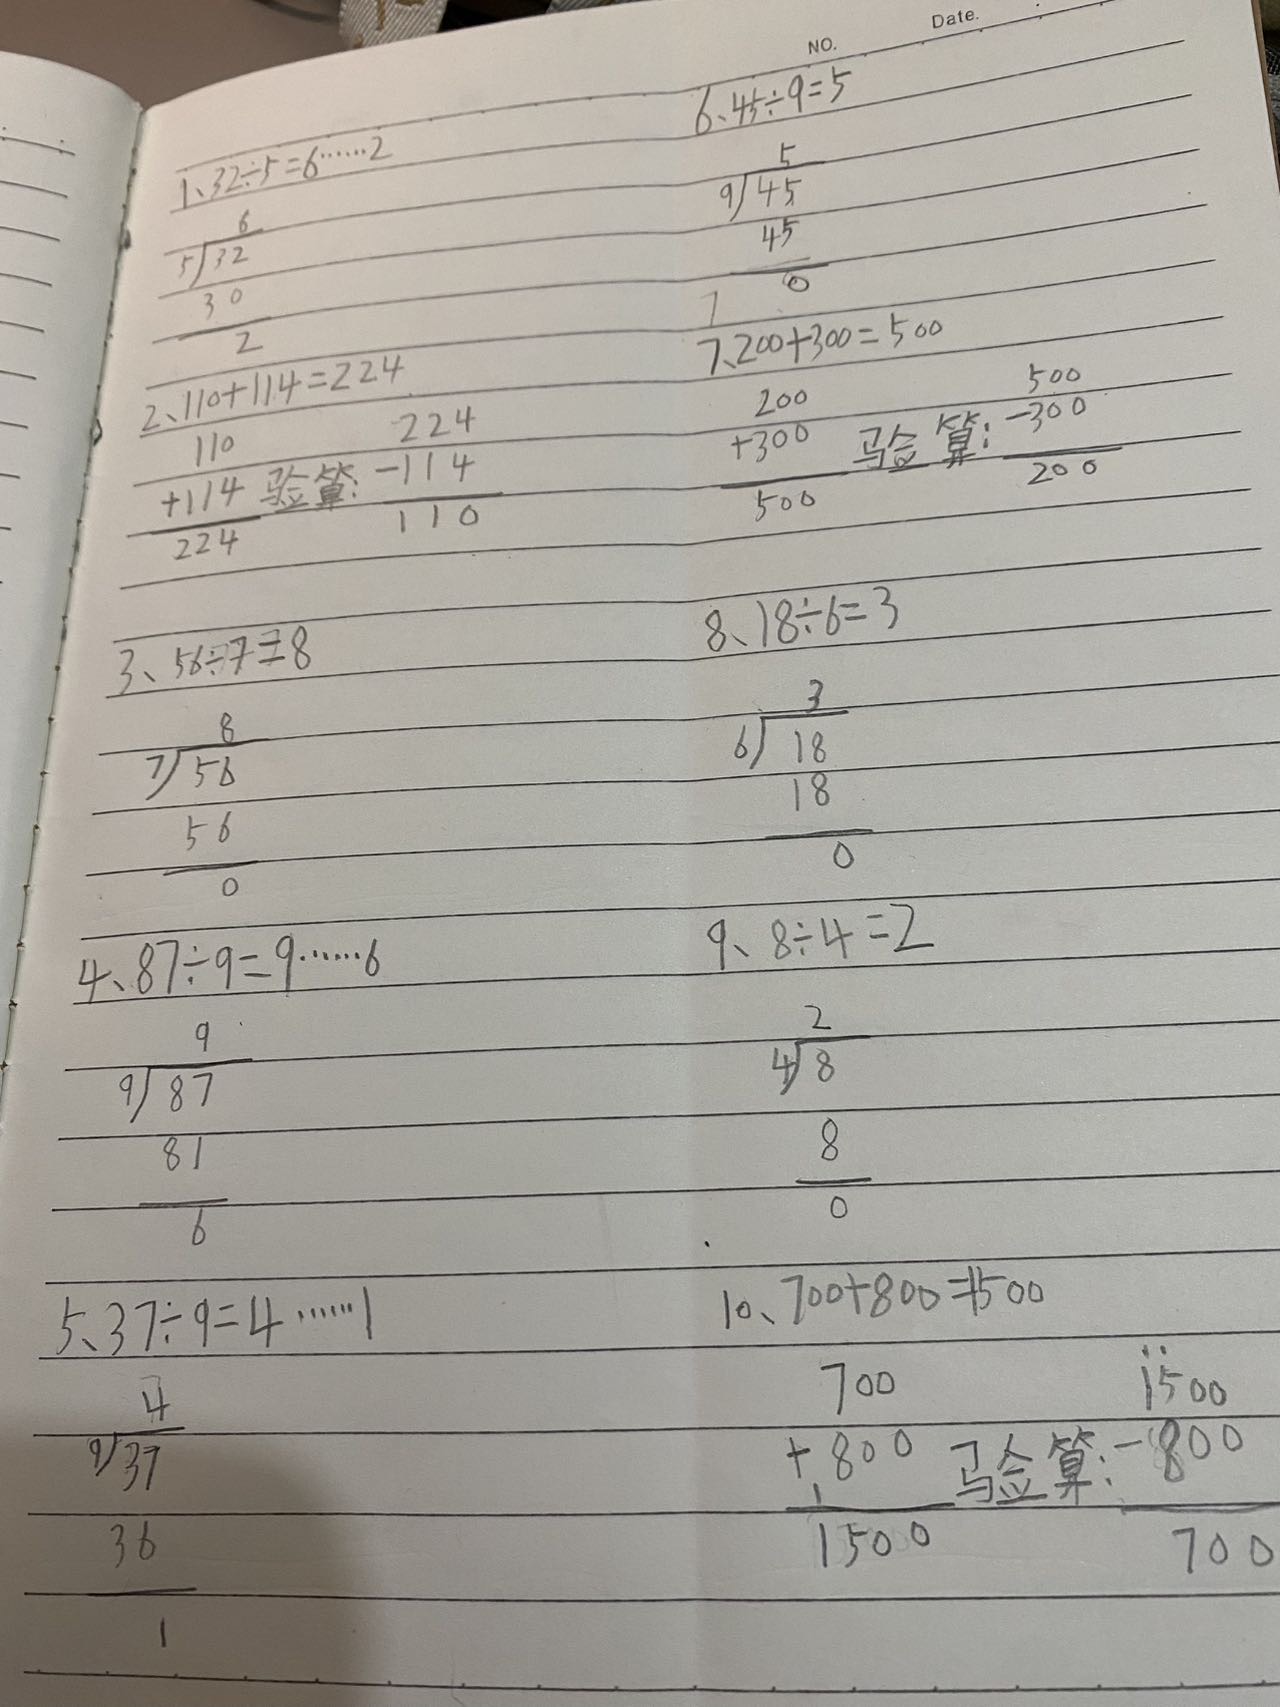 NO.
Date.
1、32÷5=6……2
6
5 32
30
2
2、110+114=224
110 224
+114 验算: -114
224 110
3、56÷7=8
8
7 56
56
0
4、87÷9=9……6
9
9 87
81
6
5、37÷9=4……1
4
9 37
36
1
6、45÷9=5
5
9 45
45
0
7
7、200+300=500
200 500
+300 验算: -300
500 200
8、18÷6=3
3
6 18
18
0
9、8÷4=2
2
4 8
8
0
10、700+800=1500
700 1500
+800 验算: -800
1
1500 700